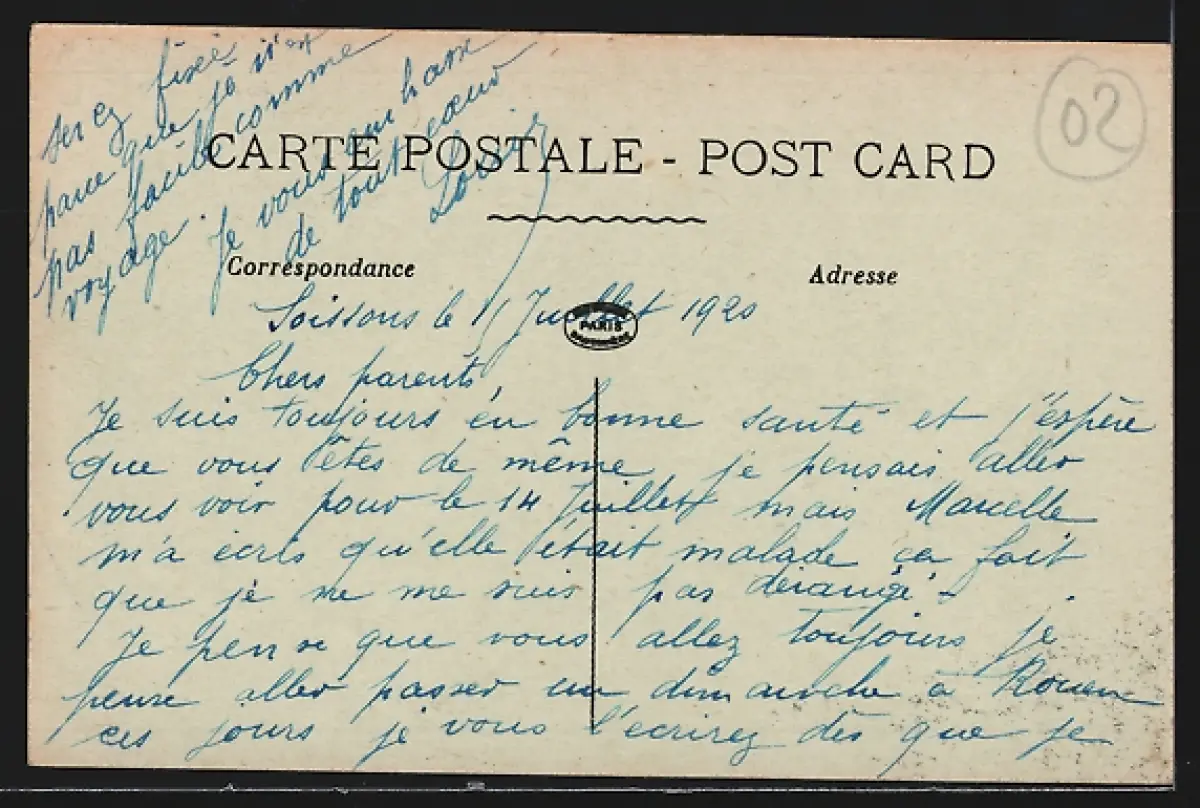 CARTE POSTALE - POST CARD
02
Correspondance
Adresse
PARIS
Soissons le 11 Juillet 1920
Chers parents,
Je suis toujours en bonne santé et j'espère
que vous êtes de même, je pensais aller
vous voir pour le 14 Juillet mais Marcelle
m'a écris qu'elle était malade ça fait
que je ne me suis pas dérangé.
Je pense que vous allez toujours je
pense aller passer un dimanche à Rouen
ces jours je vous l'écrirez dès que je
serez fixé
parce que je n'est
pas facile comme
voyage. Je vous embrasse
de tout cœur